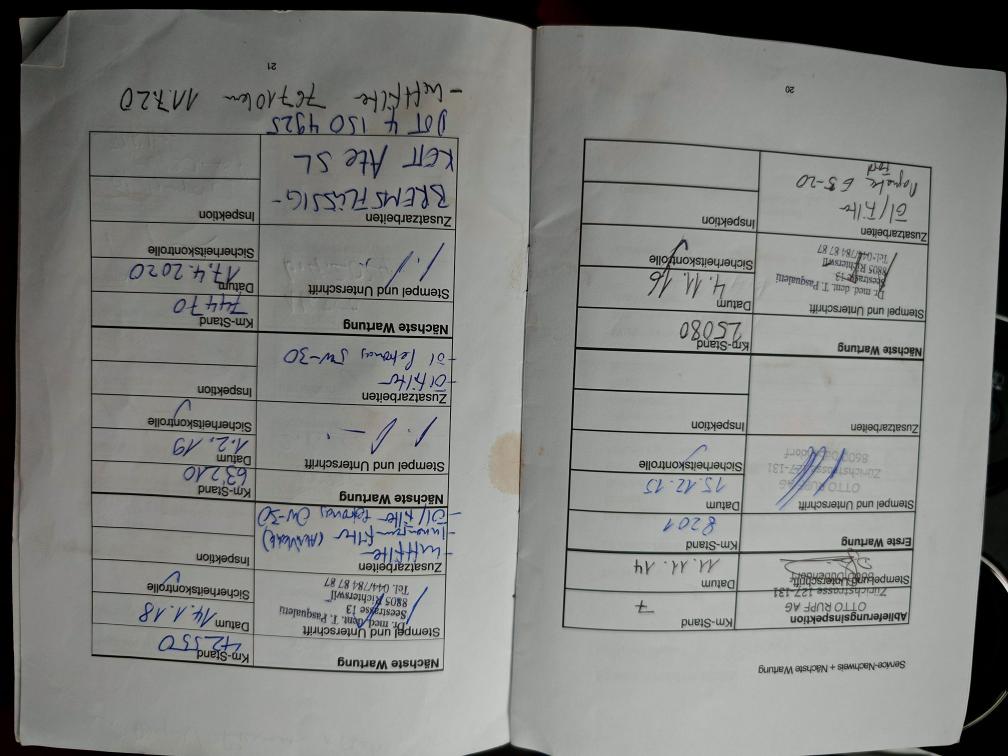 Service-Nachweis + Nächste Wartung
Ablieferungsinspektion
OTTO RUPF AG
Zürichstrasse 127-131
8600 Dübendorf
Stempel und Unterschrift
Km-Stand
7
Datum
11.11.14
Erste Wartung
Km-Stand
8201
Stempel und Unterschrift
OTTO RUPF AG
Zürichstrasse 127-131
8600 Dübendorf
Datum
15.12.15
Sicherheitskontrolle
Zusatzarbeiten
Inspektion
Nächste Wartung
Km-Stand
25080
Stempel und Unterschrift
Dr. med. dent. T. Pasqualetti
Seestrasse 13
8805 Richterswil
Tel. 044/784 87 87
Datum
4.11.16
Sicherheitskontrolle
Zusatzarbeiten
Öl/Filter
Ford
Inspektion
20
Nächste Wartung
Km-Stand
42550
Stempel und Unterschrift
Dr. med. dent. T. Pasqualetti
Seestrasse 13
8805 Richterswil
Tel. 044/784 87 87
Datum
14.1.18
Sicherheitskontrolle
Zusatzarbeiten
- Luftfilter
- Innenraumfilter
- Öl/Filter Petronas 0W-30
Inspektion
Nächste Wartung
Km-Stand
63210
Stempel und Unterschrift
Datum
1.2.19
Sicherheitskontrolle
Zusatzarbeiten
- Ölfilter
- Öl Petronas 5W-30
Inspektion
Nächste Wartung
Km-Stand
74470
Stempel und Unterschrift
Datum
17.4.2020
Sicherheitskontrolle
Zusatzarbeiten
BREMSFLÜSSIG-
KEIT Ate SL
DOT 4 ISO 4925
Inspektion
- Luftfilter 76710 km 11.7.20
21